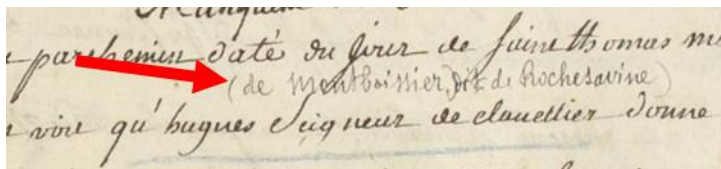 parchemin daté du jour de saint thomas
(de Montboissier, dit de Rochesavine)
voit qu'hugues Seigneur de clavellier donne